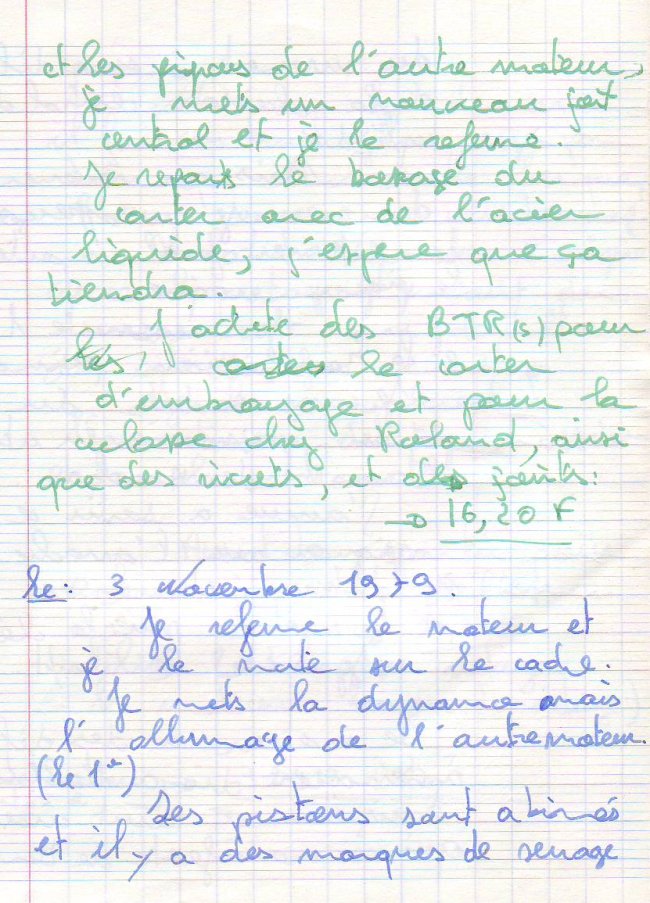 et les pignons de l'autre moteur,
je mets un nouveau joit
central et je le referme.
Je repart le barage du
carter avec de l'acier
liquide, j'espere que ça
tiendra.
J'achete des BTR(s) pour
les, carters le carter
d'embrayage et pour la
culasse chez Roland, ainsi
que des ricuts, et des joints:
→ 16,20 F
Le: 3 Novembre 1979.
Je referme le moteur et
je le monte sur le cadre.
Je mets la dynamo mais
l'allumage de l'autre moteur.
(le 1er)
Les pistons sont abimés
et il y a des marques de serrage